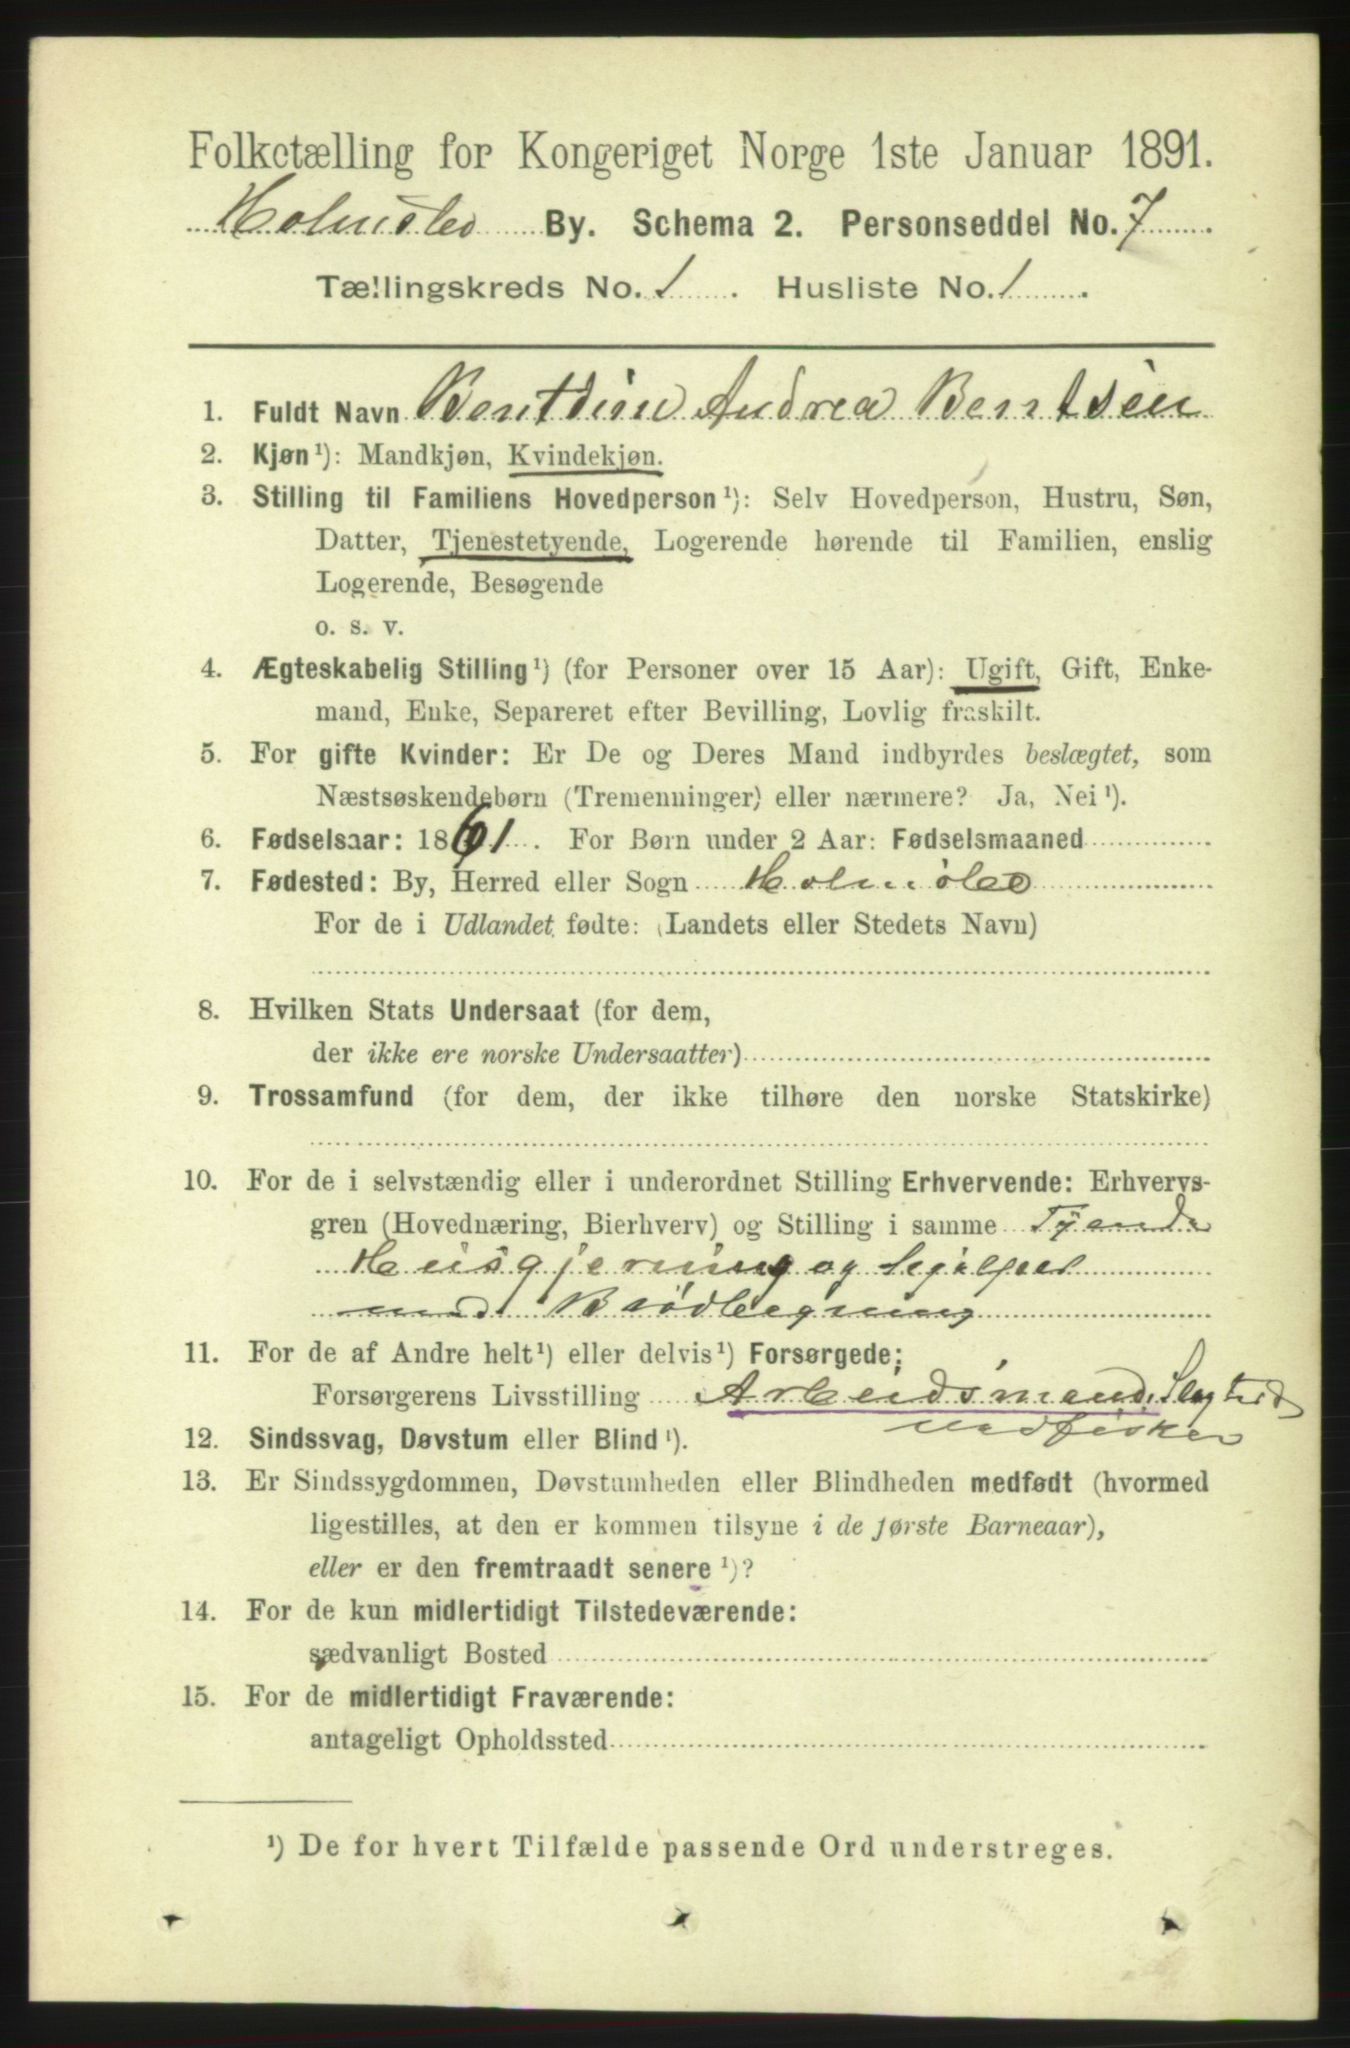 Folketælling for Kongeriget Norge 1ste Januar 1891.
Holmsbo By. Schema 2. Personseddel No. 7
Tællingskreds No. 1. Husliste No. 1.
1. Fuldt Navn Bentdine Andrea Bentsen
2. Kjøn ¹): Mandkjøn, Kvindekjøn.
3. Stilling til Familiens Hovedperson ¹): Selv Hovedperson, Hustru, Søn,
Datter, Tjenestetyende, Logerende hørende til Familien, enslig
Logerende, Besøgende
o. s. v.
4. Ægteskabelig Stilling ¹) (for Personer over 15 Aar): Ugift, Gift, Enke-
mand, Enke, Separeret efter Bevilling, Lovlig fraskilt.
5. For gifte Kvinder: Er De og Deres Mand indbyrdes beslægtet, som
Næstsøskendebørn (Tremenninger) eller nærmere? Ja, Nei ¹).
6. Fødselsaar: 1861. For Børn under 2 Aar: Fødselsmaaned
7. Fødested: By, Herred eller Sogn Holmsbo
For de i Udlandet fødte: (Landets eller Stedets Navn)
8. Hvilken Stats Undersaat (for dem,
der ikke ere norske Undersaatter)
9. Trossamfund (for dem, der ikke tilhøre den norske Statskirke)
10. For de i selvstændig eller i underordnet Stilling Erhvervende: Erhvervs-
gren (Hovednæring, Bierhverv) og Stilling i samme Tyende
Husgjerning og hjælper
med Brødbagning
11. For de af Andre helt ¹) eller delvis ¹) Forsørgede;
Forsørgerens Livsstilling Arbeidsmand,
12. Sindssvag, Døvstum eller Blind ¹).
13. Er Sindssygdommen, Døvstumheden eller Blindheden medfødt (hvormed
ligestilles, at den er kommen tilsyne i de første Barneaar),
eller er den fremtraadt senere ¹)?
14. For de kun midlertidigt Tilstedeværende:
sædvanligt Bosted
15. For de midlertidigt Fraværende:
antageligt Opholdssted
¹) De for hvert Tilfælde passende Ord understreges.